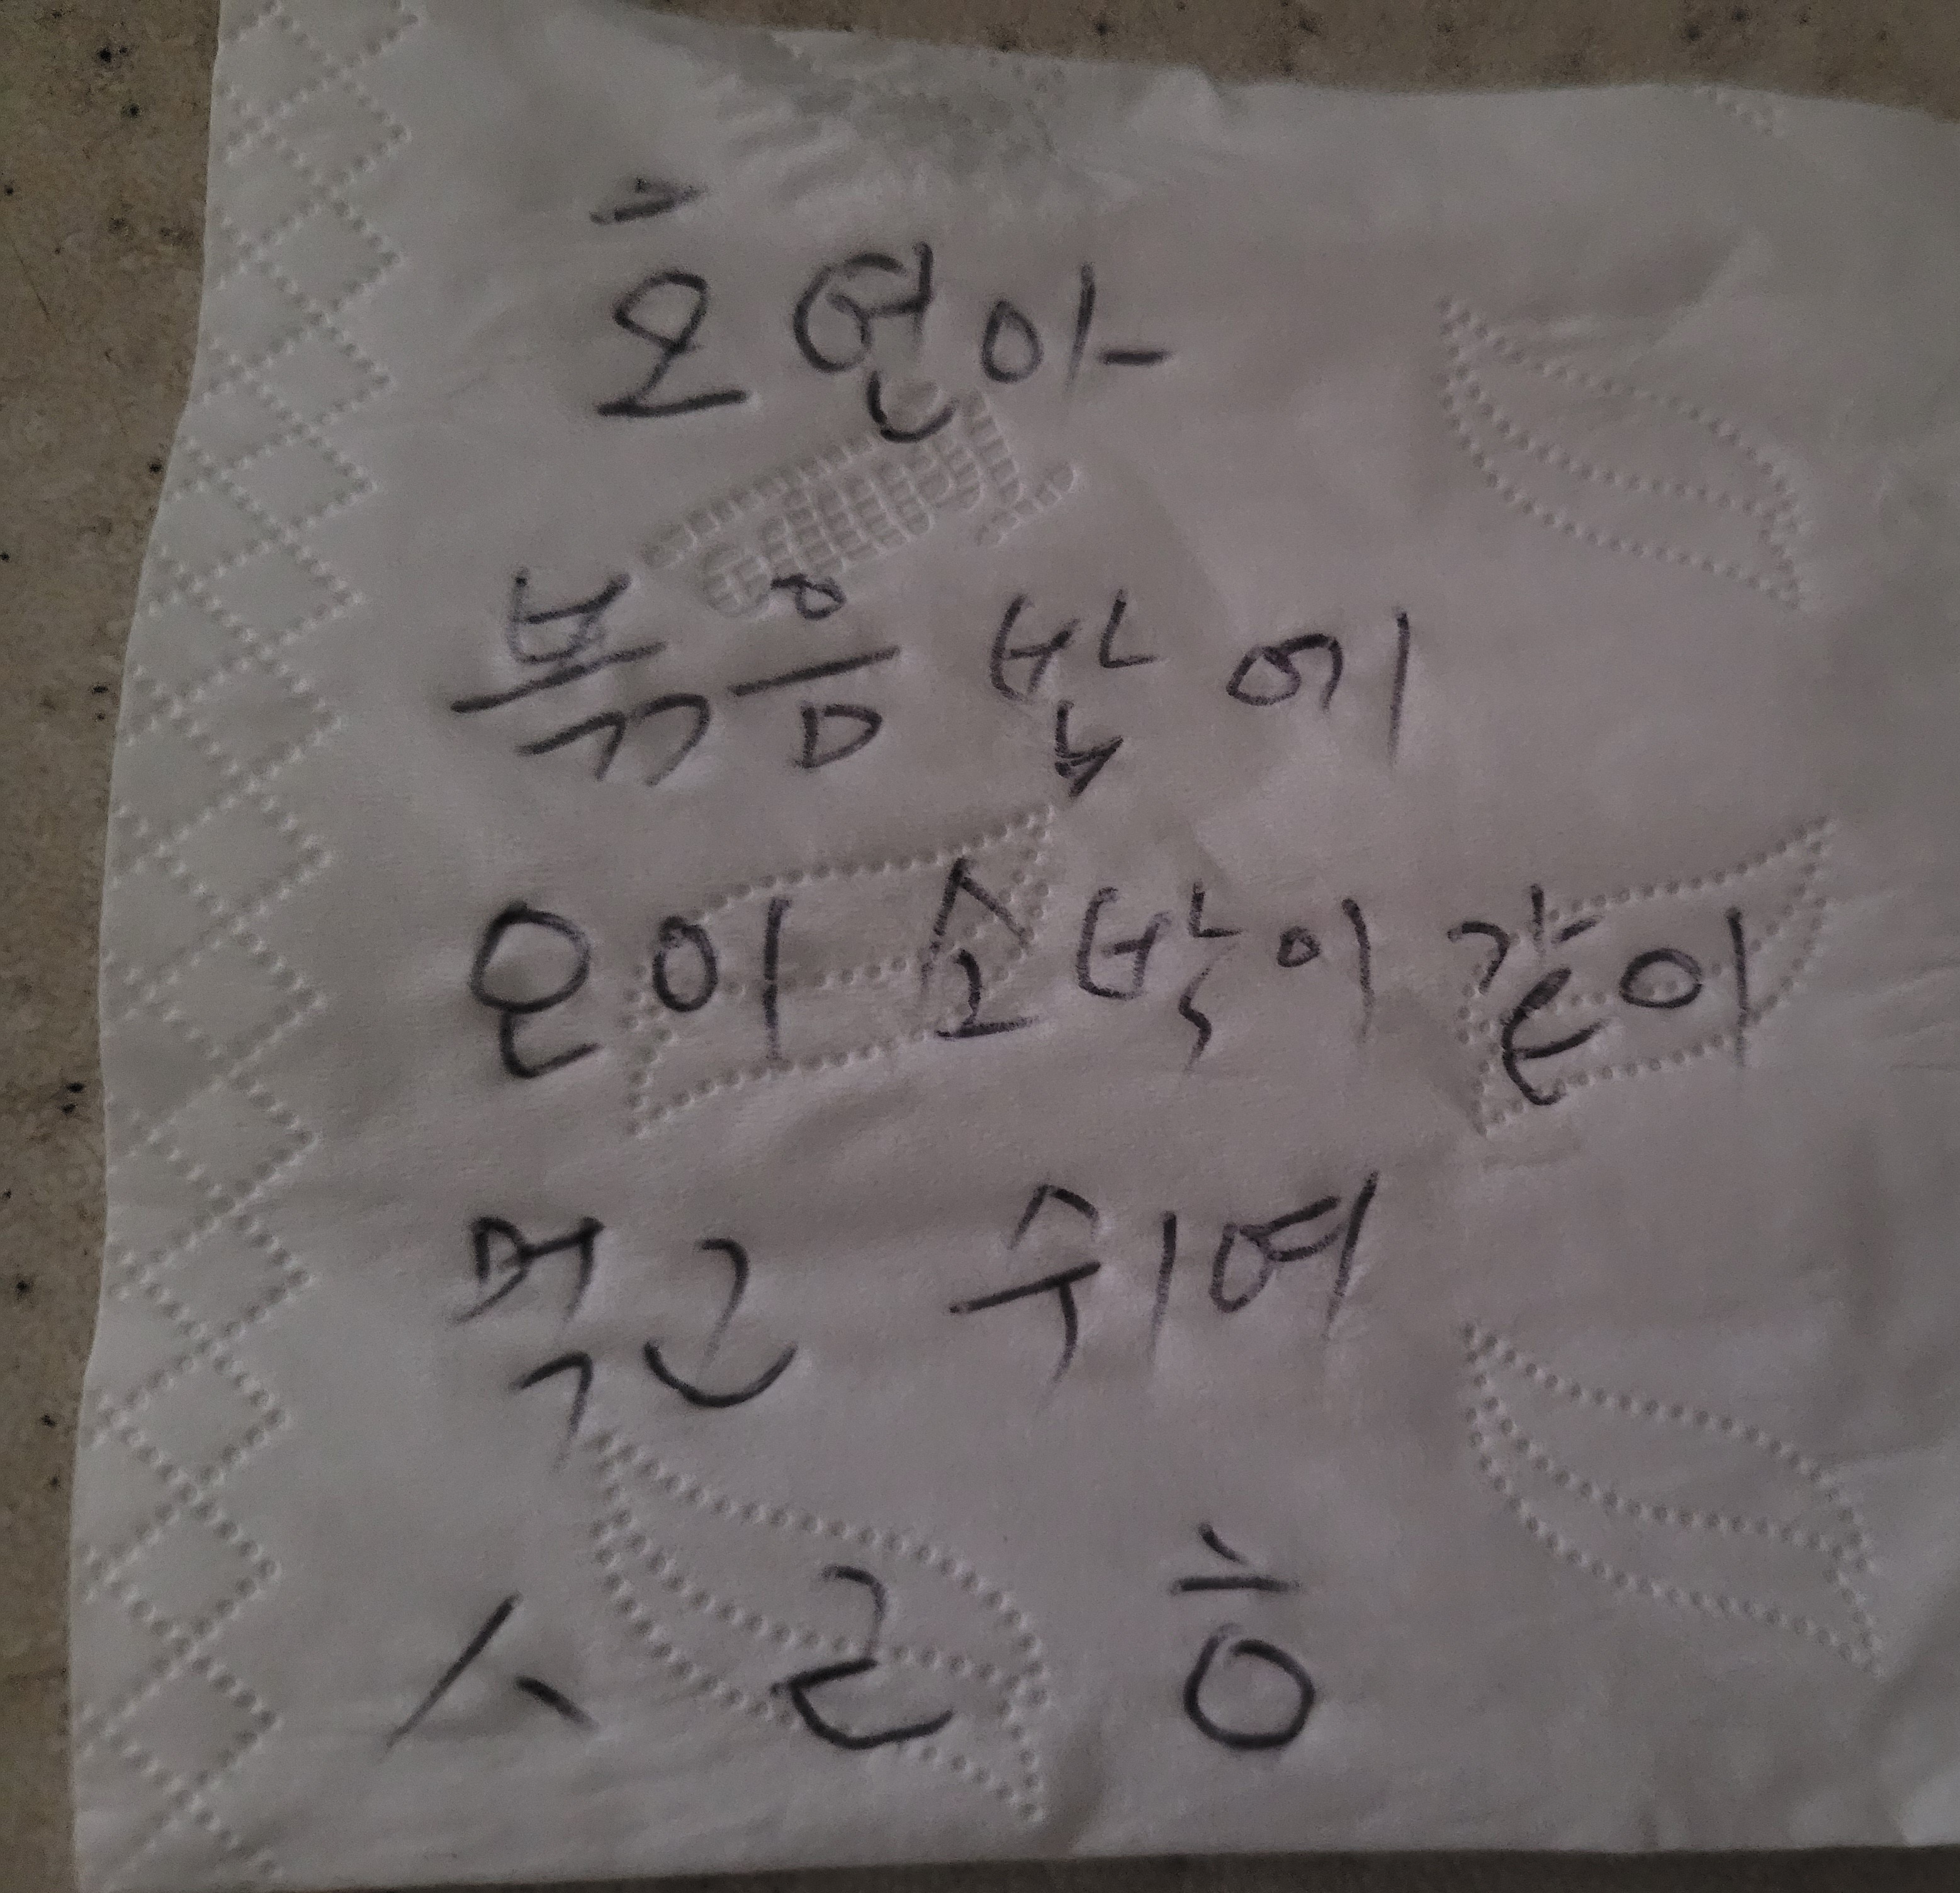 호연아
볶음밥에
오이소박이 같이
먹고 쉬여
ㅅ ㄹ ㅎ